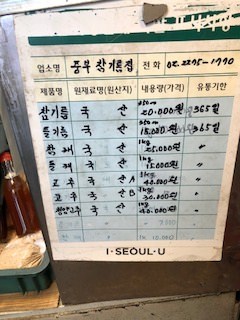 업소명 중부 참기름집 전화 02.2275-1770
제품명 원재료명(원산지) 내용량(가격) 유통기한
참기름 국 산 350ml 20.000원 365일
들기름 국 산 350ml 15.000원 365일
참깨 국 산 1kg 25.000원 〃
들깨 국 산 1kg 15.000원 〃
고추 국 산 A 1kg 40.000원 〃
고추 국 산 B 1kg 30.000원 〃
청양고추 국 산 1kg 40.000원 〃
I·SEOUL·U